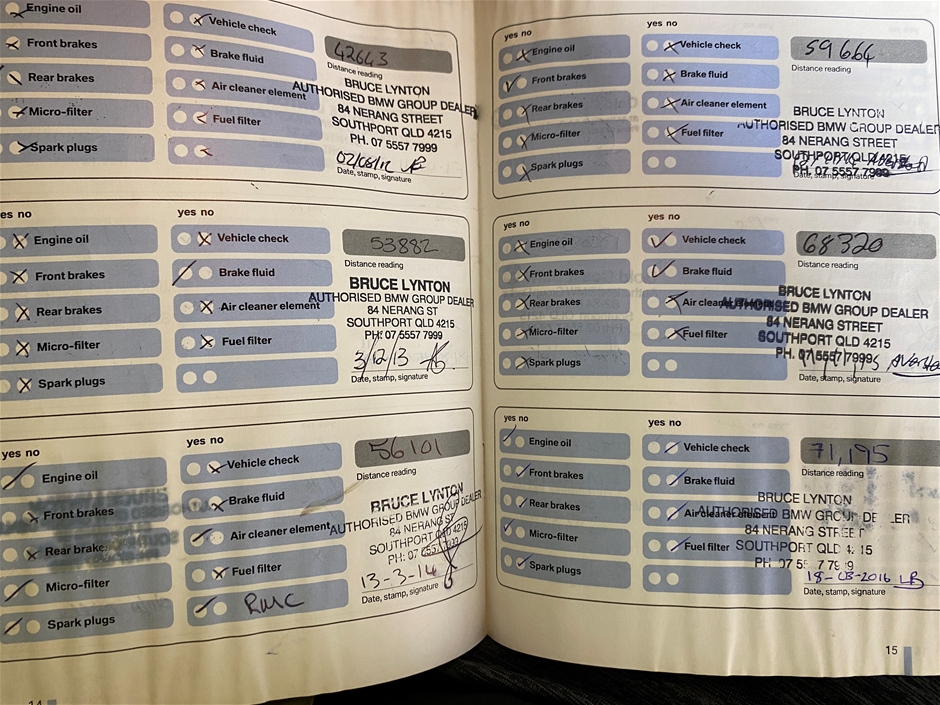 Engine oil
Vehicle check
Front brakes
Brake fluid
Rear brakes
Air cleaner element
Micro-filter
Fuel filter
Spark plugs
42643
Distance reading
BRUCE LYNTON
AUTHORISED BMW GROUP DEALER
84 NERANG STREET
SOUTHPORT QLD 4215
PH. 07 5557 7999
Date, stamp, signature
es no
yes no
Engine oil
Vehicle check
Front brakes
Brake fluid
Rear brakes
Air cleaner element
Micro-filter
Fuel filter
Spark plugs
53882
Distance reading
BRUCE LYNTON
AUTHORISED BMW GROUP DEALER
84 NERANG ST
SOUTHPORT QLD 4215
PH: 07 5557 7999
3/12/13
Date, stamp, signature
yes no
yes no
Engine oil
Vehicle check
Front brakes
Brake fluid
Rear brakes
Air cleaner element
Micro-filter
Fuel filter
Spark plugs
RMC
56101
Distance reading
BRUCE LYNTON
AUTHORISED BMW GROUP DEALER
84 NERANG ST
SOUTHPORT QLD 4215
PH: 07 5557 7999
13-3-14
Date, stamp, signature
14
yes no
yes no
Engine oil
Vehicle check
Front brakes
Brake fluid
Rear brakes
Air cleaner element
Micro-filter
Fuel filter
Spark plugs
59664
Distance reading
BRUCE LYNTON
AUTHORISED BMW GROUP DEALER
84 NERANG STREET
SOUTHPORT QLD 4215
PH. 07 5557 7999
Date, stamp, signature
yes no
yes no
Engine oil
Vehicle check
Front brakes
Brake fluid
Rear brakes
Air cleaner element
Micro-filter
Fuel filter
Spark plugs
68320
Distance reading
BRUCE LYNTON
AUTHORISED BMW GROUP DEALER
84 NERANG STREET
SOUTHPORT QLD 4215
PH. 07 5557 7999
Date, stamp, signature
yes no
yes no
Engine oil
Vehicle check
Front brakes
Brake fluid
Rear brakes
Air cleaner element
Micro-filter
Fuel filter
Spark plugs
71,195
Distance reading
BRUCE LYNTON
AUTHORISED BMW GROUP DEALER
84 NERANG STREET
SOUTHPORT QLD 4215
PH. 07 5557 7999
18-03-2016 LB
Date, stamp, signature
15